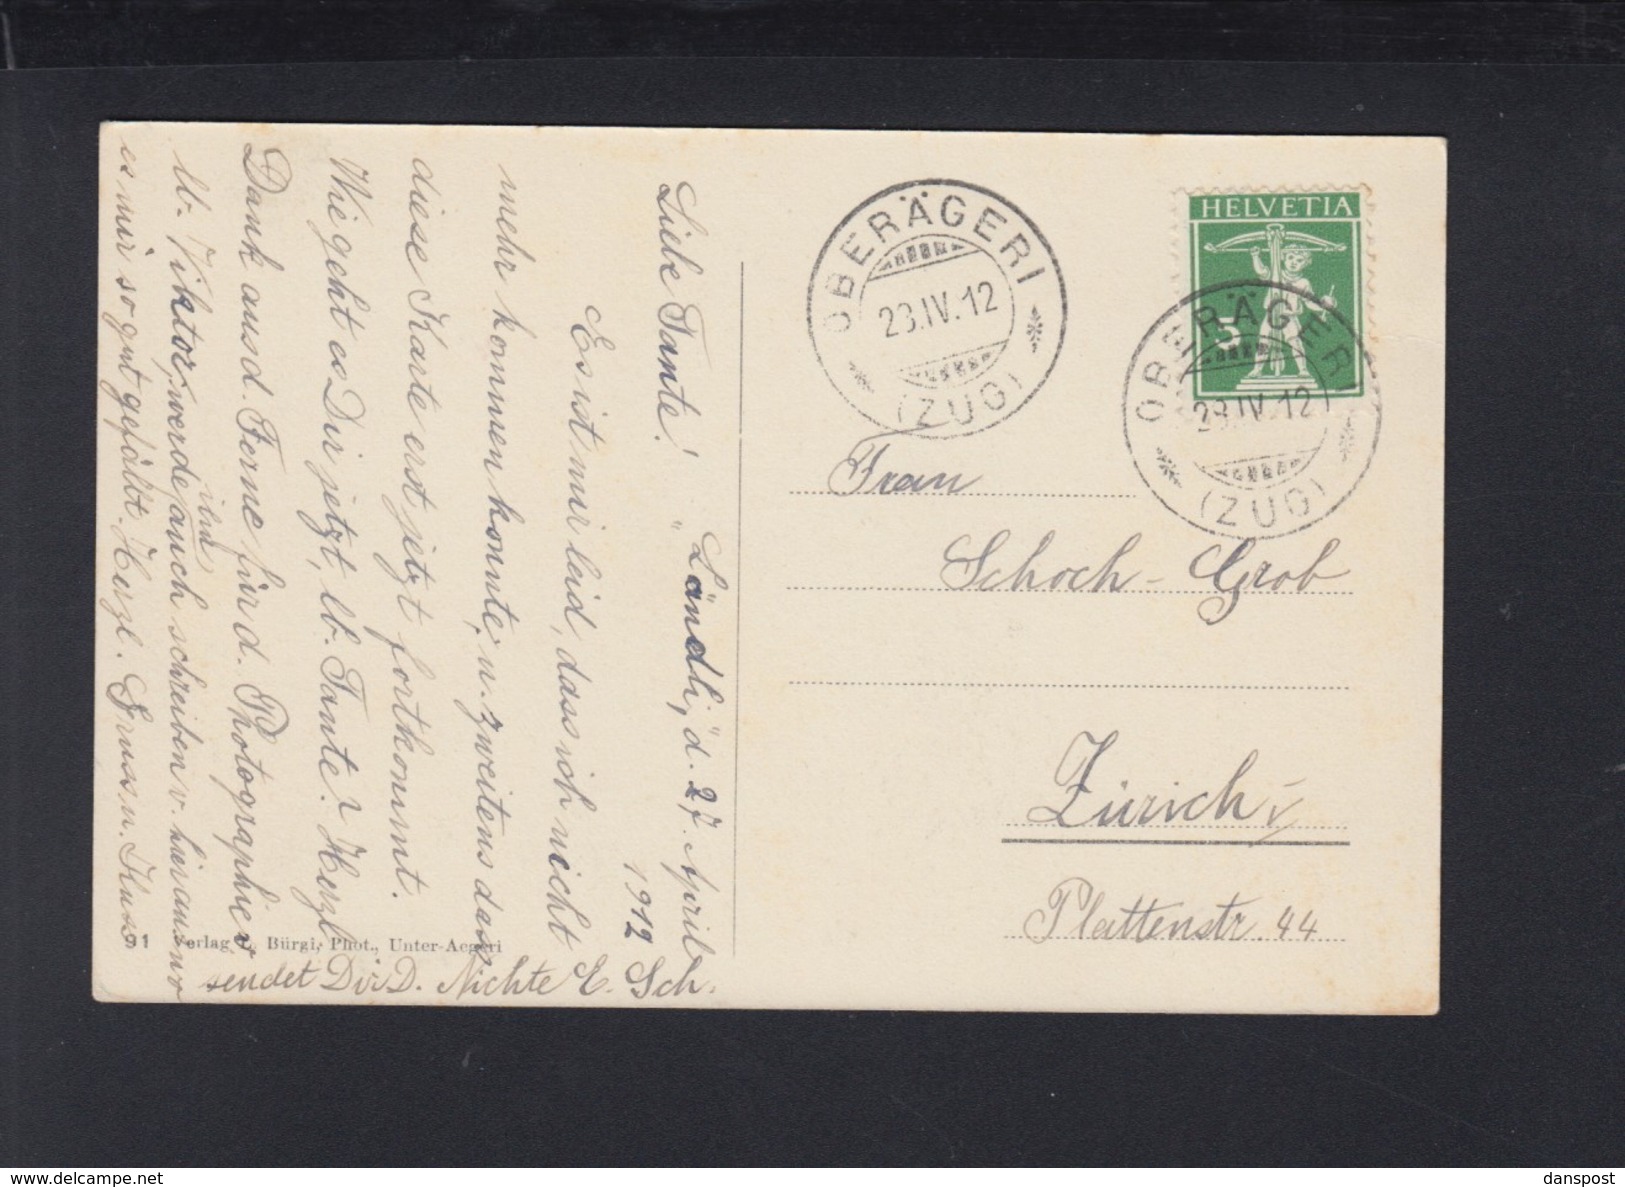 "Ländli," d. 27. April
1912
Liebe Tante!
Es ist mir leid, dass ich nicht
mehr kommen konnte, u. zweitens dass
diese Karte erst jetzt fortkommt.
Wie geht es Dir jetzt, lb. Tante? Herzl
Dank aus d. Ferne für d. Photographie v
lb. Viktor, werde ihm auch schreiben v. hier aus, wo
es mir so gut gefällt. Herzl. Gruss u. Kuss
sendet Dir D. Nichte E. Sch.
91 Verlag Bürgi, Phot., Unter-Aegeri
OBERÄGERI
23.IV.12
(ZUG)
HELVETIA
5
OBERÄGERI
23.IV.12
(ZUG)
Frau
Schoch-Grob
Zürich V
Plattenstr. 44
danspost